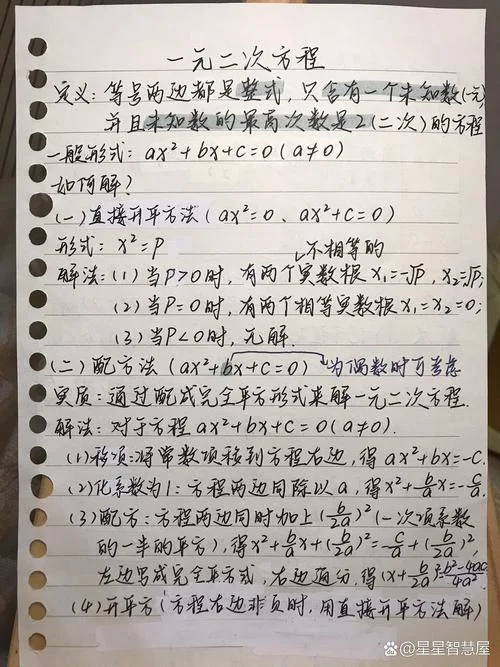 一元二次方程
定义：等号两边都是整式，只含有一个未知数(一元)
并且未知数的最高次数是2(二次)的方程
一般形式：ax²+bx+c=0(a≠0)
如何解？
(一)直接开平方法(ax²=0、ax²+c=0)
形式：x²=P
不相等的
解法：(1)当P>0时，有两个实数根x₁=-√P，x₂=√P；
(2)当P=0时，有两个相等实数根x₁=x₂=0；
(3)当P<0时，无解.
(二)配方法(ax²+bx+c=0) 为偶数时可考虑
实质：通过配成完全平方形式来解一元二次方程.
解法：对于方程ax²+bx+c=0(a≠0).
(1)移项：将常数项移到方程右边，得ax²+bx=-c.
(2)化系数为1：方程两边同除以a，得x²+b/a x=-c/a.
(3)配方：方程两边同时加上(b/2a)²(一次项系数
的一半的平方)，得x²+b/a x+(b/2a)²=-c/a+(b/2a)²，
左边写成完全平方式，右边通分，得(x+b/2a)²=b²-4ac/4a²
(4)开平方(方程右边非负时，用直接开平方法解)
@星星智慧屋